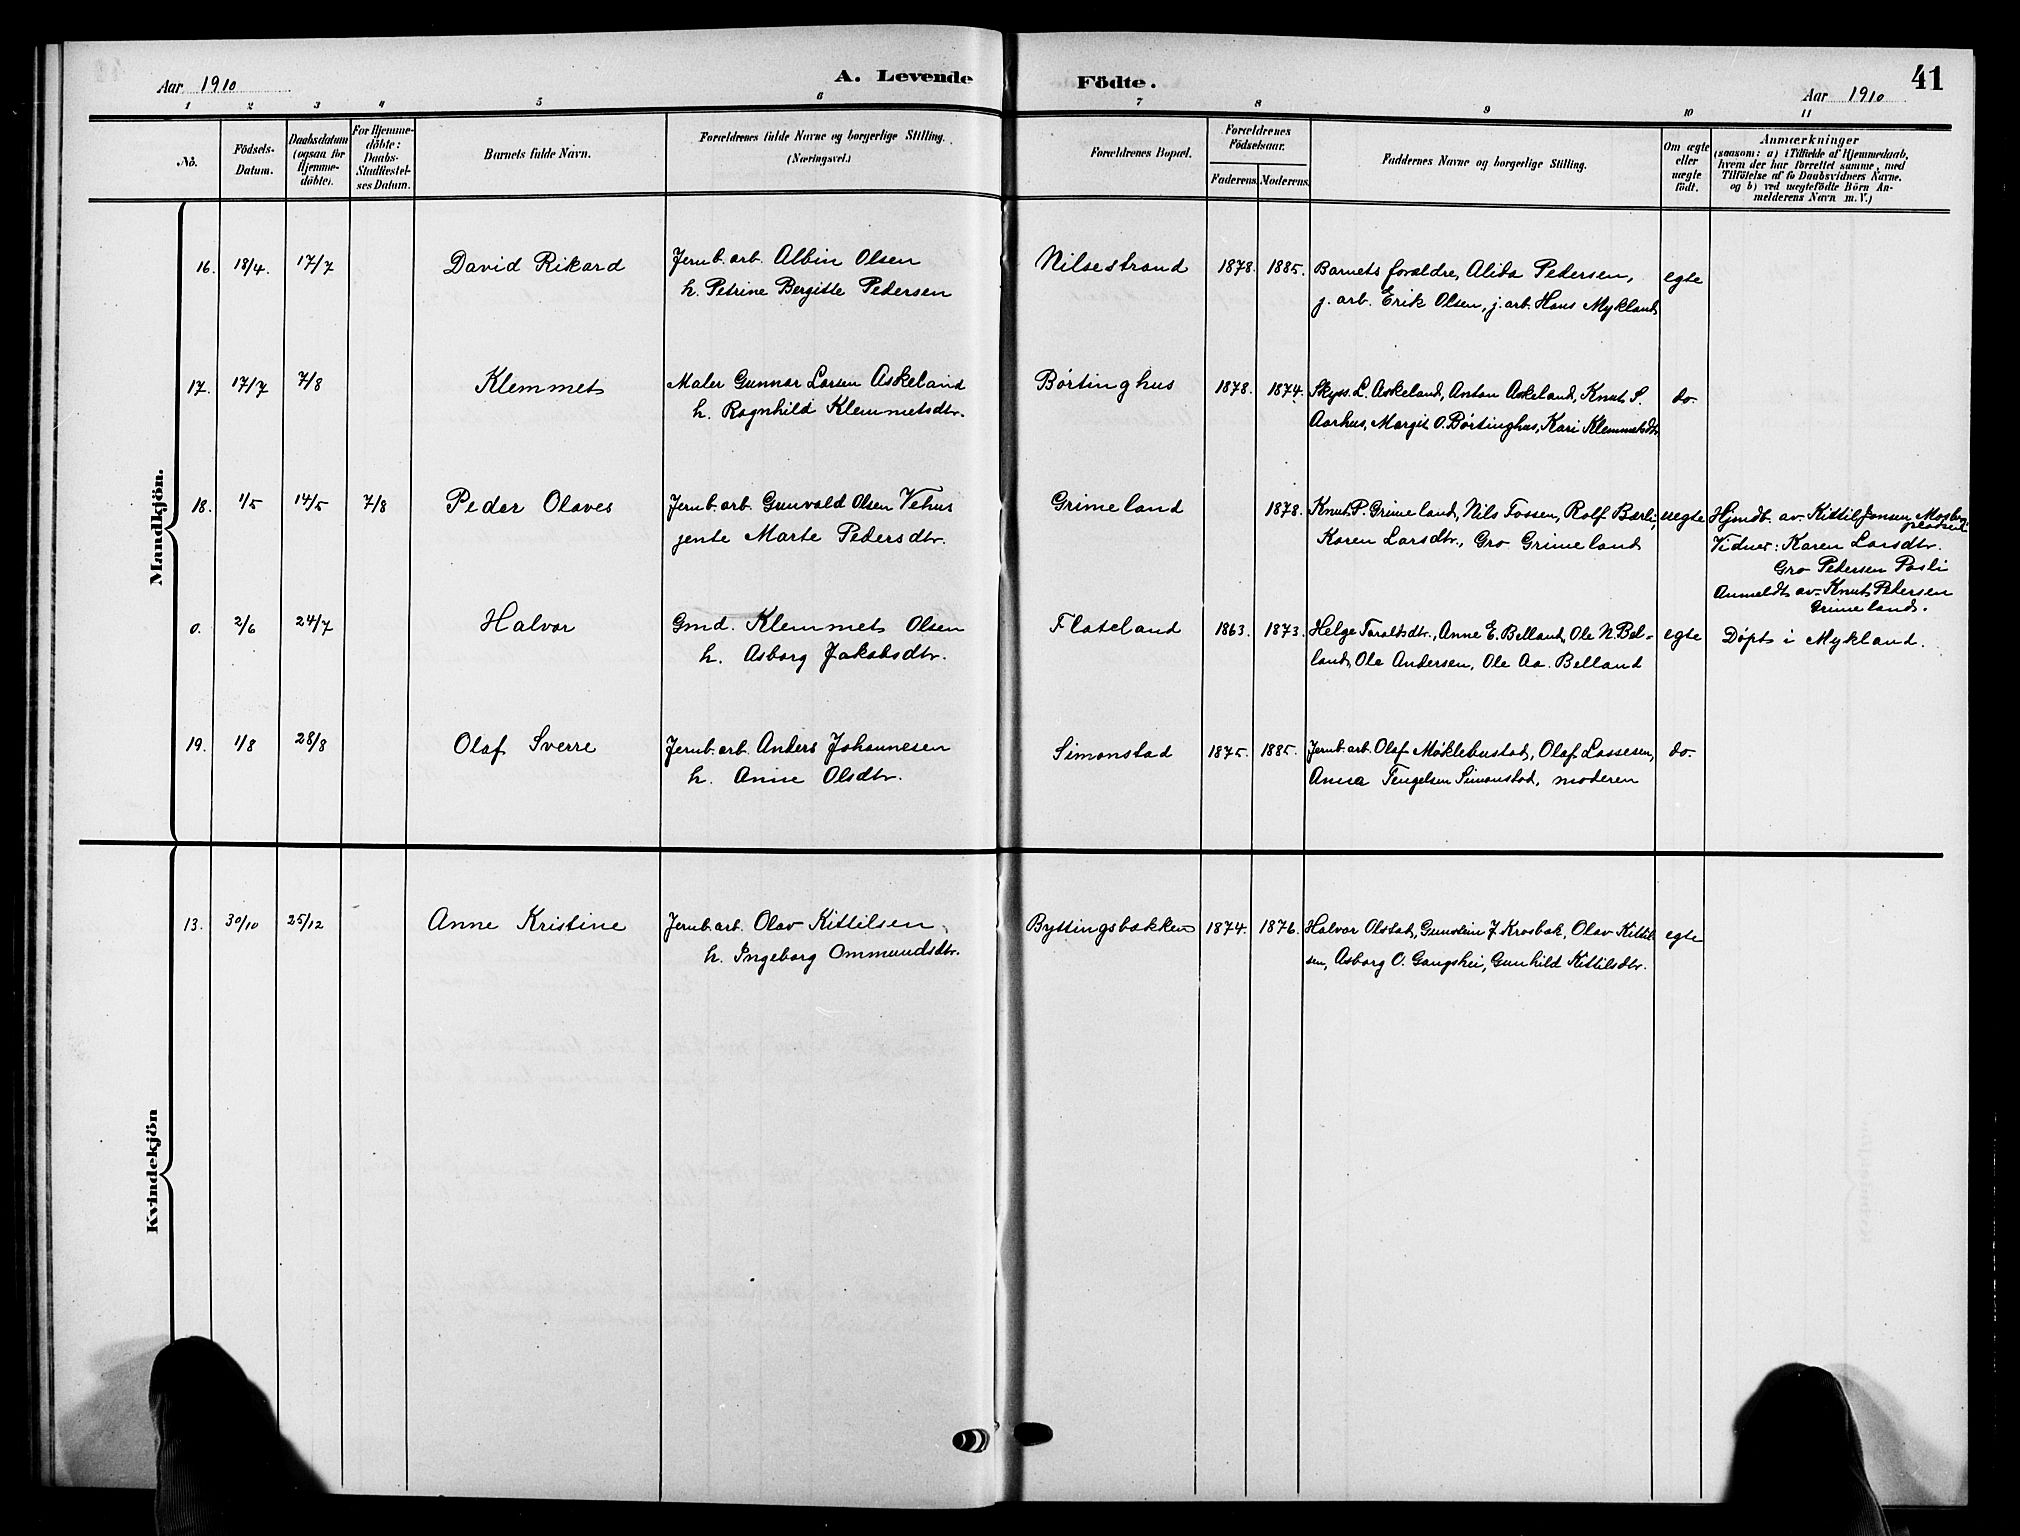 Aar 1910
A. Levende
Födte.
41
Aar 1910
1 2 3 4 5 6 7 8 9 10 11
No.
Födsels-
Datum.
Daabsdatum
(ogsaa for
Hjemme-
döbte).
For Hjemme-
döbte:
Daabs-
Stadfæstel-
ses Datum.
Barnets fulde Navn.
Forældrenes fulde Navne og borgerlige Stilling.
(Næringsvei.)
Forældrenes Bopæl.
Forældrenes
Födselsaar.
Faderens. Moderens.
Faddernes Navne og borgerlige Stilling.
Om ægte
eller
uægte
födt.
Anmærkninger
(saasom: a) i Tilfælde af Hjemmedaab,
hvem der har forrettet samme, med
Tilföielse af to Daabsvidners Navne,
og b) ved uægtefödte Börn An-
melderens Navn m. V.)
Mandkjön.
16. 18/4. 17/7 David Rikard
Jernb. arb. Albin Olsen
h. Petrine Bergitte Pedersen
Nilsestrand 1878. 1885.
Barnets forældre, Alida Pedersen,
j. arb. Erik Olsen, j. arb. Hans Mykland
egte
17. 17/7 7/8 Klemmet
Maler Gunnar Larsen Askeland
h. Ragnhild Klemmetsdtr.
Børtinghus 1878. 1874.
Skyss. L. Askeland, Anton Askeland, Knut S.
Aarhus, Margit O. Børtinghus, Kari Klemmetsdtr
do.
18. 1/5 14/5 7/8 Peder Olaves
Jernb. arb. Gunvald Olsen Vehus
jente Marte Pedersdtr.
Grimeland 1878.
Knut P. Grimeland, Nils Fossen, Rolf Bærli,
Karen Larsdtr., Gro Grimeland
uegte
Hjmdb. av Kittil Jonsen Mosberg
Vidner: Karen Larsdtr.
Gro Pedersen Påsli
Anmeldt av Knut Petersen
Grimeland.
0. 2/6 24/7 Halvor
Gmd. Klemmet Olsen
h. Asborg Jakobsdtr.
Flateland 1863. 1873.
Helge Taraldsdtr., Anne E. Belland, Ole N. Bel-
land, Ole Andersen, Ole Aa. Belland
egte
Døpt i Mykland.
19. 1/8 28/8 Olaf Sverre
Jernb. arb. Anders Johannesen
h. Anne Olsdtr.
Simonstad 1875. 1885.
Jernb. arb. Olaf Møklebustad, Olaf Lassesen,
Anna Tengelsen Simonstad, moderen
do.
Kvindekjön
13. 30/10 25/12 Anne Kristine
Jernb. arb. Olav Kittilsen,
h. Ingeborg Ommundsdtr.
Byttingsbakken 1874. 1876.
Halvor Olstad, Gunstein J. Krosbak, Olav Kittil
sen, Asborg O. Gangshei, Gunhild Kittilsdtr.
egte